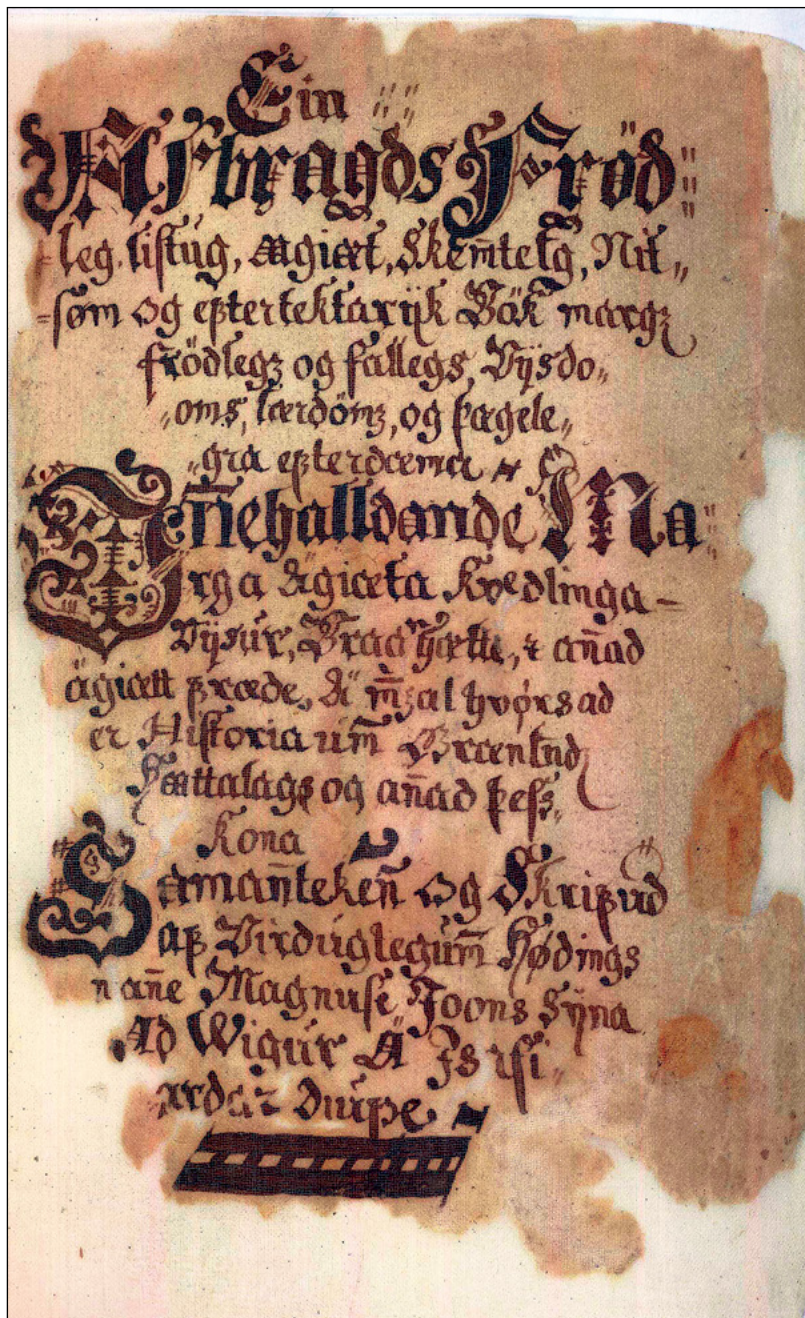 Ein
Afbragds Fröd
leg. listug, Agiæt, Skem̃teleg, Nit„
-søm og epterektarijk Bök margz
frödlegz og fallegs, Vijsdo„
„oms, lærdömz, og fægele„
„gra epterdæma
Iñehalldande Ma
rga ägiæta Kvedlinga
Vijsur, Brag hætte, & añad
ägiætt fræde, hvørs ad
er Historia um̃
Hättalags og añad þess„
kona
Samañteken og Skrifud
af Virduglegum̃ Høfdings
mañe Magnuse Joons Syne
Ad Wigur Ä Isafi„
ardar diupe